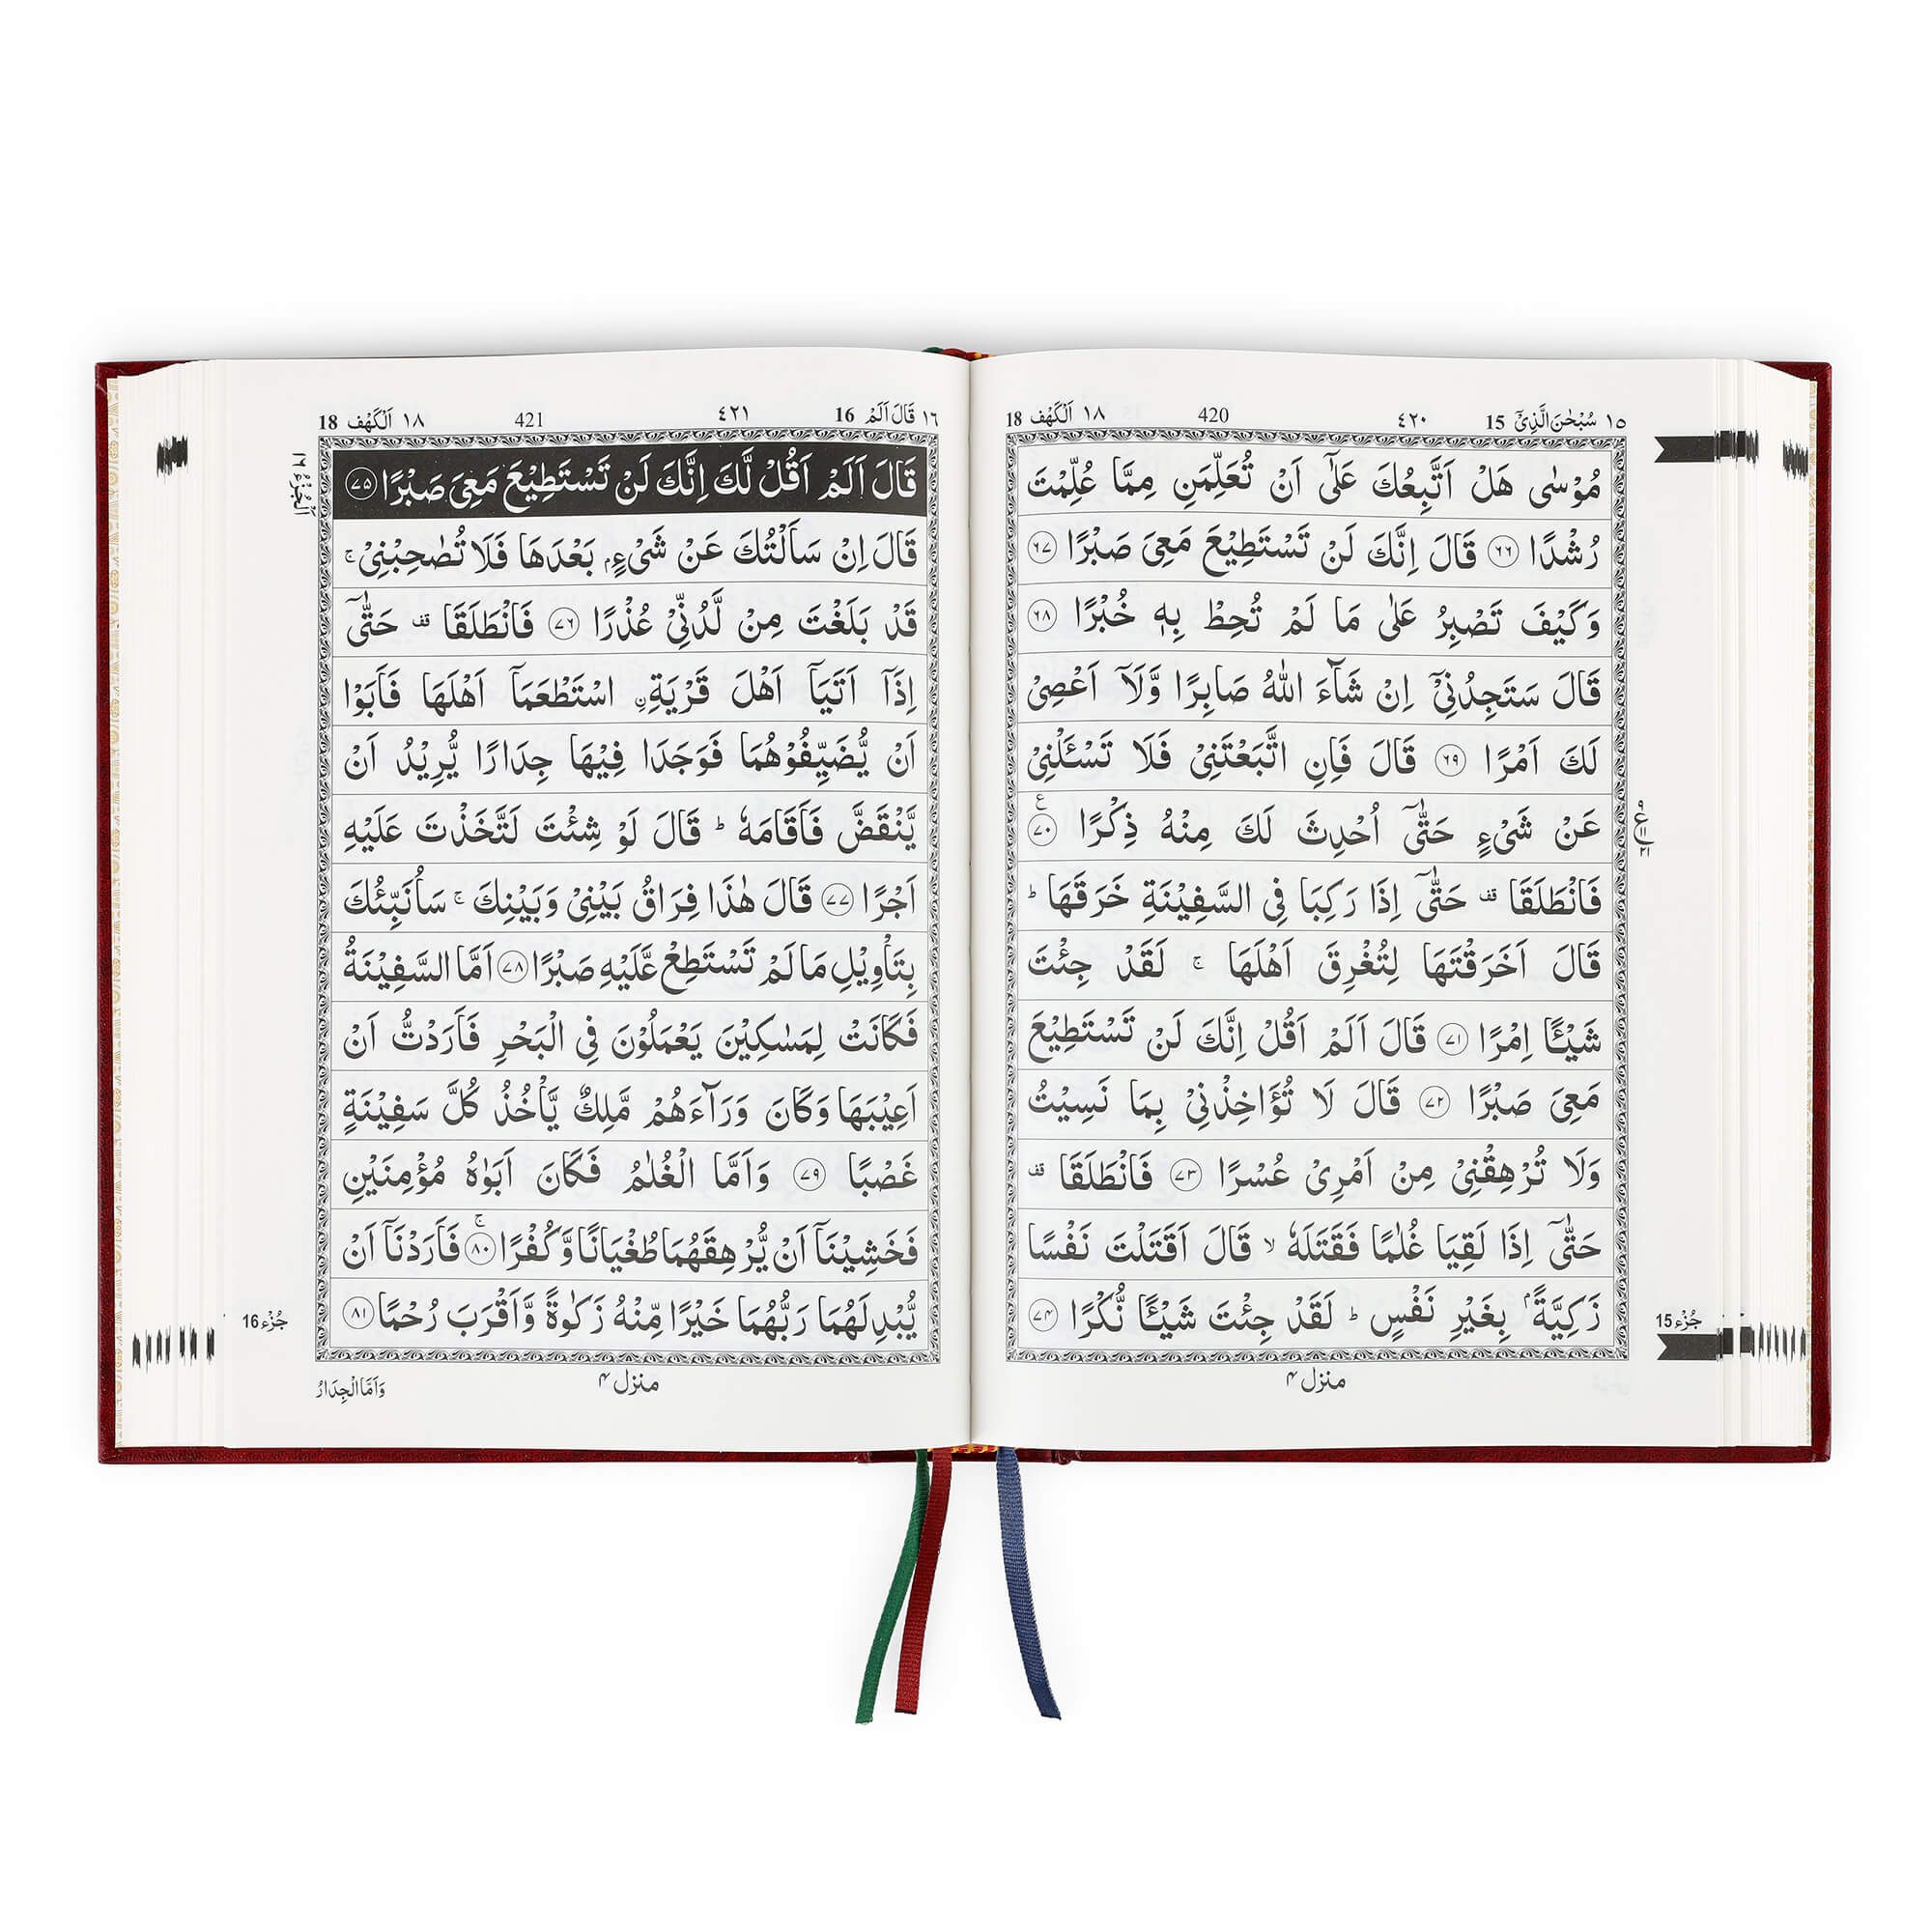 ١٥ سُبْحٰنَ الَّذِیْۤ 15 ٤٢٠ 420 ١٨ اَلْكَهْف 18
مُوْسٰى هَلْ اَتَّبِعُكَ عَلٰۤى اَنْ تُعَلِّمَنِ مِمَّا عُلِّمْتَ
رُشْدًا ﴿٦٦﴾ قَالَ اِنَّكَ لَنْ تَسْتَطِیْعَ مَعِیَ صَبْرًا ﴿٦٧﴾
وَكَیْفَ تَصْبِرُ عَلٰى مَا لَمْ تُحِطْ بِهٖ خُبْرًا ﴿٦٨﴾
قَالَ سَتَجِدُنِیْۤ اِنْ شَآءَ اللّٰهُ صَابِرًا وَّلَاۤ اَعْصِیْ
لَكَ اَمْرًا ﴿٦٩﴾ قَالَ فَاِنِ اتَّبَعْتَنِیْ فَلَا تَسْـَٔلْنِیْ
عَنْ شَیْءٍ حَتّٰۤى اُحْدِثَ لَكَ مِنْهُ ذِكْرًا ﴿٧٠﴾ ع
فَانْطَلَقَا قف حَتّٰۤى اِذَا رَكِبَا فِی السَّفِیْنَةِ خَرَقَهَا ؕ
قَالَ اَخَرَقْتَهَا لِتُغْرِقَ اَهْلَهَا ۚ لَقَدْ جِئْتَ
شَیْـًٔا اِمْرًا ﴿٧١﴾ قَالَ اَلَمْ اَقُلْ اِنَّكَ لَنْ تَسْتَطِیْعَ
مَعِیَ صَبْرًا ﴿٧٢﴾ قَالَ لَا تُؤَاخِذْنِیْ بِمَا نَسِیْتُ
وَلَا تُرْهِقْنِیْ مِنْ اَمْرِیْ عُسْرًا ﴿٧٣﴾ فَانْطَلَقَا قف
حَتّٰۤى اِذَا لَقِیَا غُلٰمًا فَقَتَلَهٗ ۙ قَالَ اَقَتَلْتَ نَفْسًا
زَكِیَّةًۢ بِغَیْرِ نَفْسٍ ؕ لَقَدْ جِئْتَ شَیْـًٔا نُّكْرًا ﴿٧٤﴾
جُزْء 15
منزل ۴
١٦ قَالَ اَلَمْ 16 ٤٢١ 421 ١٨ اَلْكَهْف 18
اَلْجُزْءُ ١٦
قَالَ اَلَمْ اَقُلْ لَّكَ اِنَّكَ لَنْ تَسْتَطِیْعَ مَعِیَ صَبْرًا ﴿٧٥﴾
قَالَ اِنْ سَاَلْتُكَ عَنْ شَیْءٍۭ بَعْدَهَا فَلَا تُصٰحِبْنِیْ ۚ
قَدْ بَلَغْتَ مِنْ لَّدُنِّیْ عُذْرًا ﴿٧٦﴾ فَانْطَلَقَا قف حَتّٰۤى
اِذَاۤ اَتَیَاۤ اَهْلَ قَرْیَةِ ِ۟اسْتَطْعَمَاۤ اَهْلَهَا فَاَبَوْا
اَنْ یُّضَیِّفُوْهُمَا فَوَجَدَا فِیْهَا جِدَارًا یُّرِیْدُ اَنْ
یَّنْقَضَّ فَاَقَامَهٗ ؕ قَالَ لَوْ شِئْتَ لَتَّخَذْتَ عَلَیْهِ
اَجْرًا ﴿٧٧﴾ قَالَ هٰذَا فِرَاقُ بَیْنِیْ وَبَیْنِكَ ۚ سَاُنَبِّئُكَ
بِتَاْوِیْلِ مَا لَمْ تَسْتَطِعْ عَّلَیْهِ صَبْرًا ﴿٧٨﴾ اَمَّا السَّفِیْنَةُ
فَكَانَتْ لِمَسٰكِیْنَ یَعْمَلُوْنَ فِی الْبَحْرِ فَاَرَدْتُّ اَنْ
اَعِیْبَهَا وَكَانَ وَرَآءَهُمْ مَّلِكٌ یَّاْخُذُ كُلَّ سَفِیْنَةٍ
غَصْبًا ﴿٧٩﴾ وَاَمَّا الْغُلٰمُ فَكَانَ اَبَوٰهُ مُؤْمِنَیْنِ
فَخَشِیْنَاۤ اَنْ یُّرْهِقَهُمَا طُغْیَانًا وَّكُفْرًا ۚ﴿٨٠﴾ فَاَرَدْنَاۤ اَنْ
یُّبْدِلَهُمَا رَبُّهُمَا خَیْرًا مِّنْهُ زَكٰوةً وَّاَقْرَبَ رُحْمًا ﴿٨١﴾
جُزْء 16
منزل ۴
وَاَمَّا الْجِدَارُ